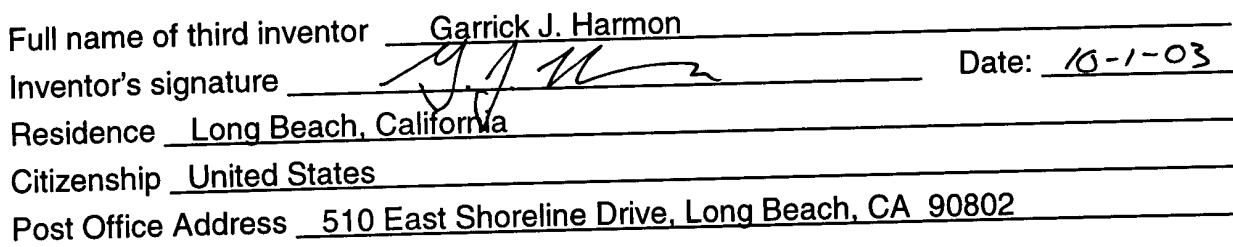 Full name of third inventor Garrick J. Harmon
Inventor's signature G. J. H Date: 10-1-03
Residence Long Beach, California
Citizenship United States
Post Office Address 510 East Shoreline Drive, Long Beach, CA 90802